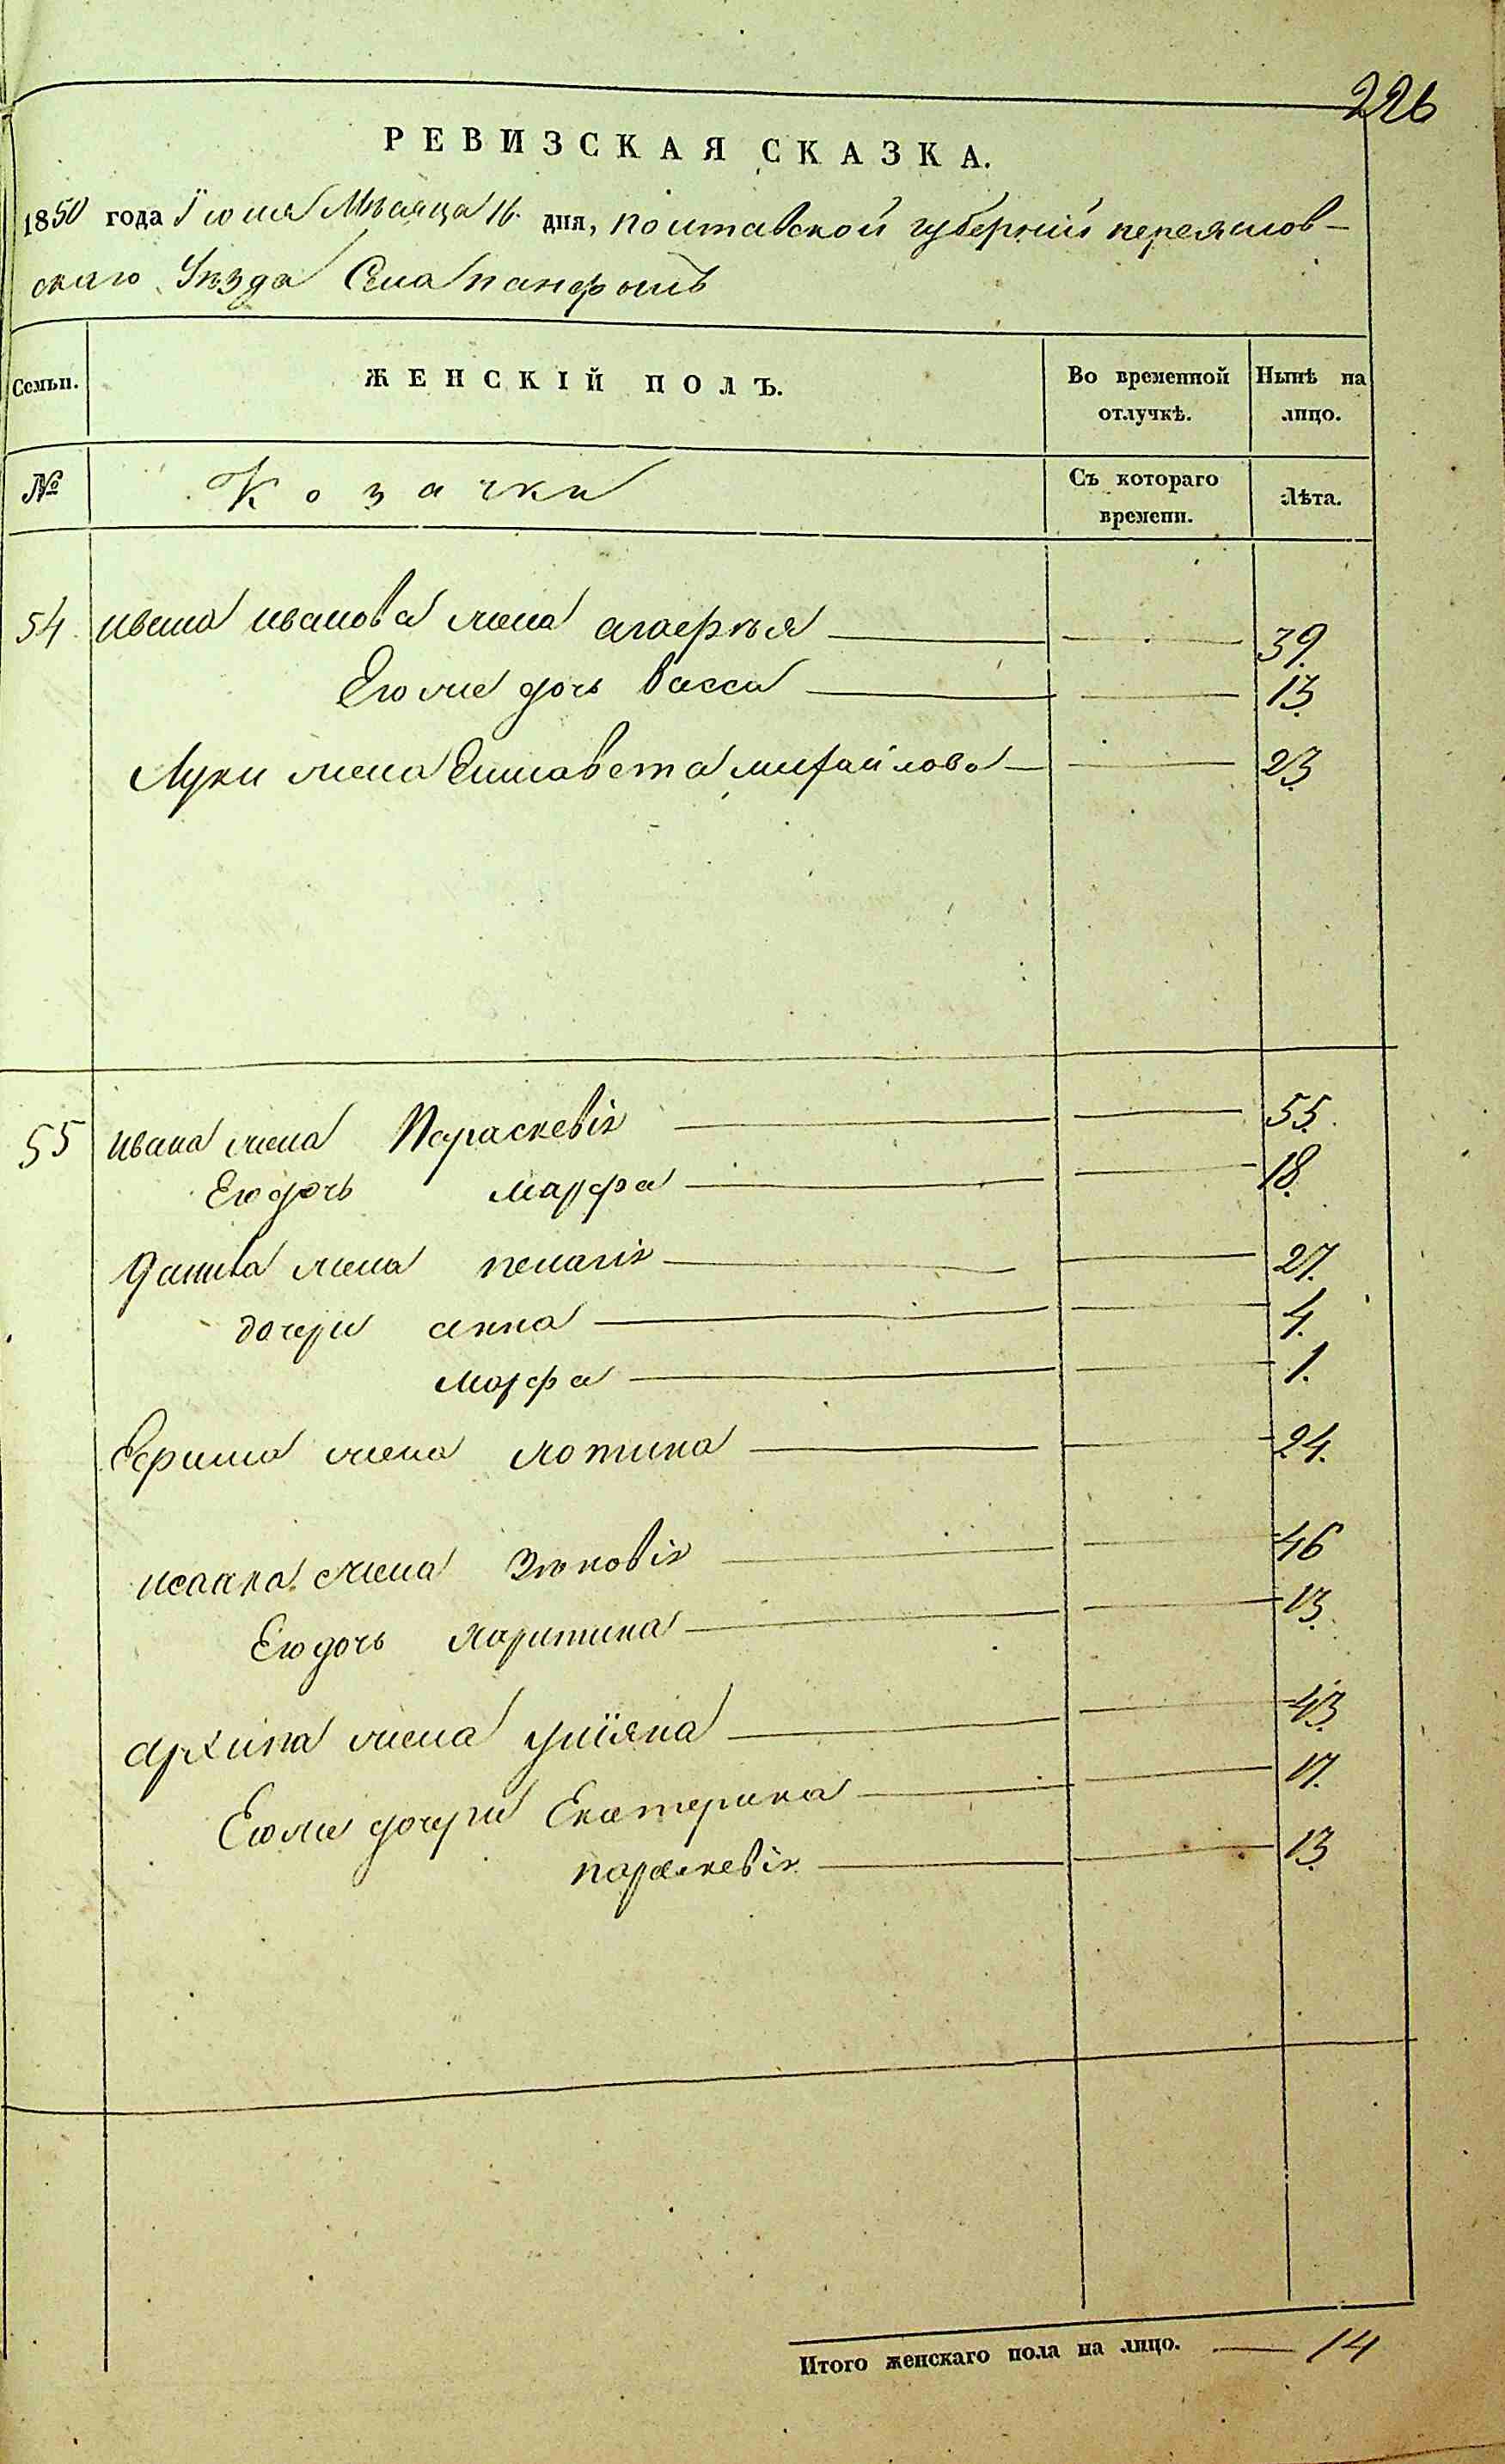 226
РЕВИЗСКАЯ СКАЗКА.
1850 года Іюня Мѣсяца 16 дня, полтавской губерніи переяслов-
скаго Уѣзда Села панфилъ
Семьи. ЖЕНСКІЙ ПОЛЪ. Во временной отлучкѣ. Нынѣ на лицо.
№ Козачки Съ котораго времени. Лѣта.
54 ивана иванова жена агаефья 39.
Его же дочь Васса 13.
Луки жена Елисавета михайлова 23.
55 ивана жена Параскевія 55.
Его дочь марфа 18.
Данила жена пелагія 27.
дочери анна 4.
марфа 1.
Ефима жена 24.
исаака жена Зѣновія 46
Его дочь Харитина 13.
архипа жена уліяна 43.
Его же дочери Екатерина 17.
параскевія 13.
Итого женскаго пола на лицо. 14